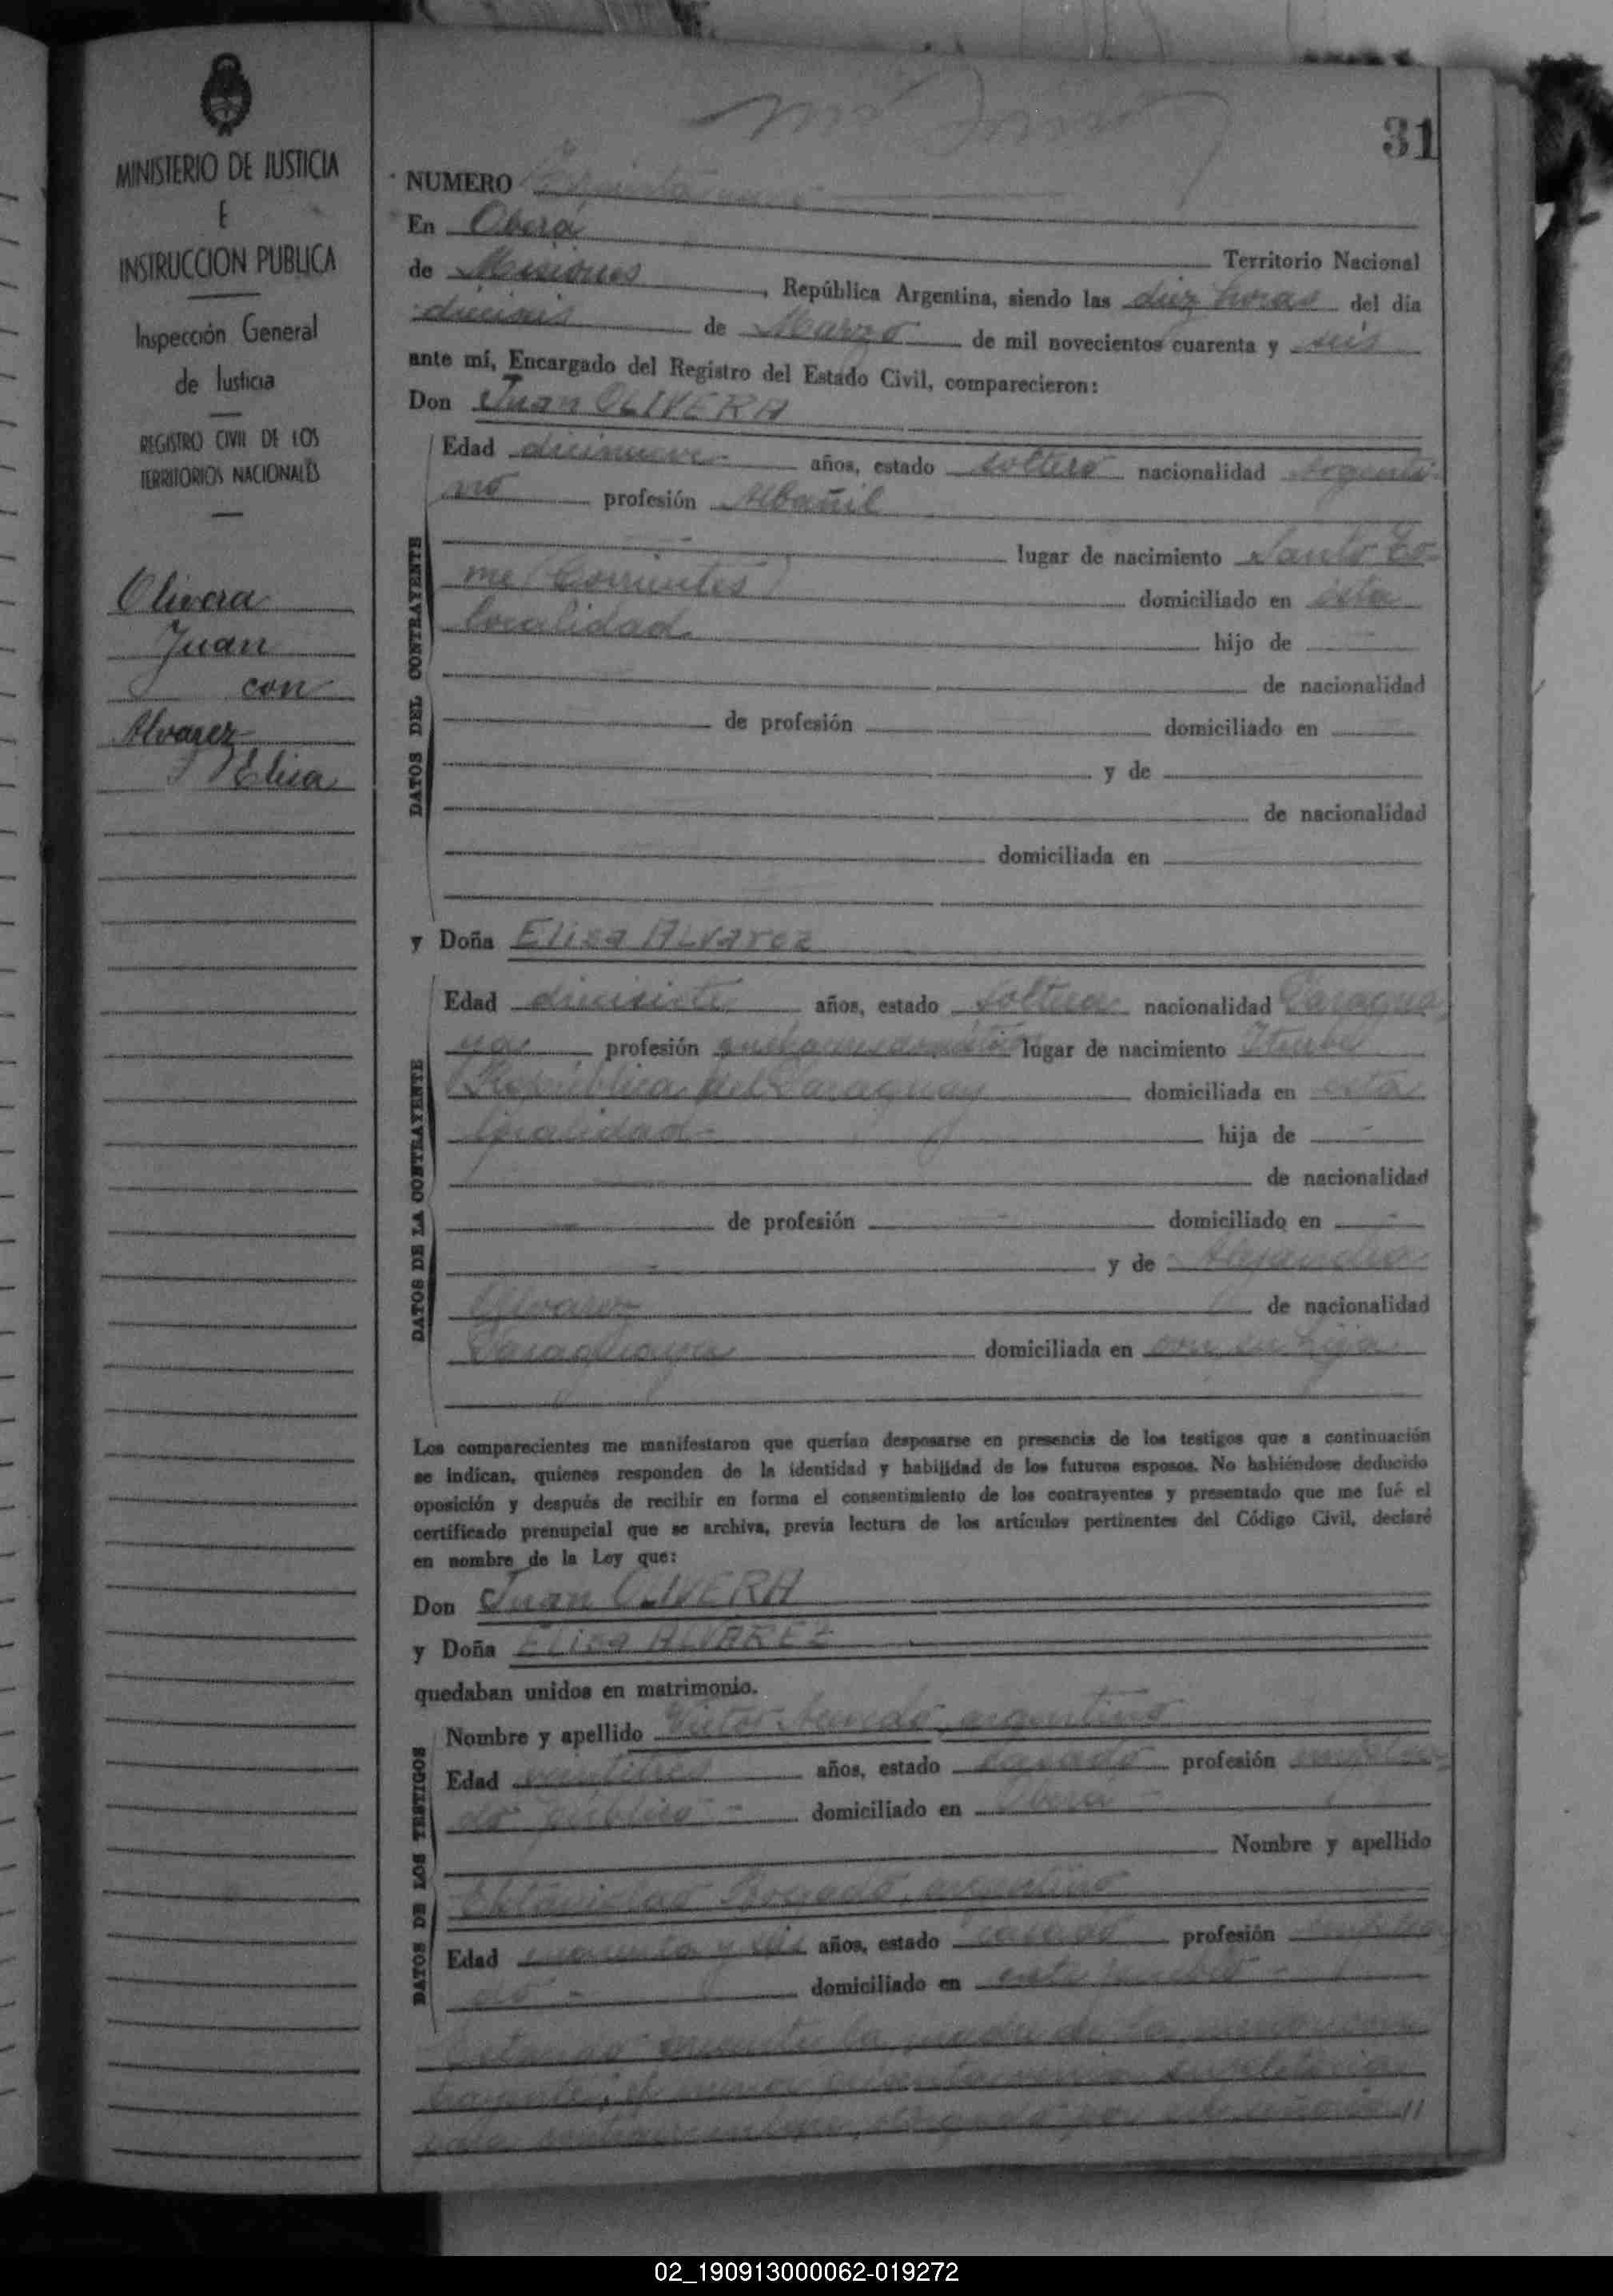 31
MINISTERIO DE JUSTICIA
E
INSTRUCCION PUBLICA
Inspección General
de Justicia
REGISTRO CIVIL DE LOS
TERRITORIOS NACIONALES
Olivera
Juan
con
Alvarez
Elisa
NUMERO
En Oberá Territorio Nacional
de Misiones, República Argentina, siendo las diez horas del día
de Marzo de mil novecientos cuarenta y seis
ante mí, Encargado del Registro del Estado Civil, comparecieron:
Don Juan OLIVERA
DATOS DEL CONTRAYENTE
Edad diecinueve años, estado soltero nacionalidad Argenti-
no profesión Albañil
lugar de nacimiento Santo To-
me (Corrientes) domiciliado en esta
localidad. hijo de
de nacionalidad
de profesión domiciliado en
y de
de nacionalidad
domiciliada en
y Doña Elisa ALVarez
DATOS DE LA CONTRAYENTE
Edad diecisiete años, estado soltera nacionalidad Paragua
ya profesión quehaceres domésticos lugar de nacimiento Iturbe
(República del Paraguay domiciliada en esta
localidad- hija de
de nacionalidad
de profesión domiciliado en
y de Alejandra
Alvarez de nacionalidad
Paraguaya domiciliada en con su hija
Los comparecientes me manifestaron que querían desposarse en presencia de los testigos que a continuación
se indican, quienes responden de la identidad y habilidad de los futuros esposos. No habiéndose deducido
oposición y después de recibir en forma el consentimiento de los contrayentes y presentado que me fué el
certificado prenupcial que se archiva, previa lectura de los artículos pertinentes del Código Civil, declaré
en nombre de la Ley que:
Don Juan OLIVERA
y Doña Elisa ALVAREZ
quedaban unidos en matrimonio.
DATOS DE LOS TESTIGOS
Nombre y apellido Victor argentino
Edad veintitres años, estado casado profesión emplea-
do público - domiciliado en Oberá -
Nombre y apellido
Bogado, argentino
Edad cuarenta y seis años, estado casado profesión
domiciliado en este pueblo -
Estando presente la madre de la menor con
02_190913000062-019272